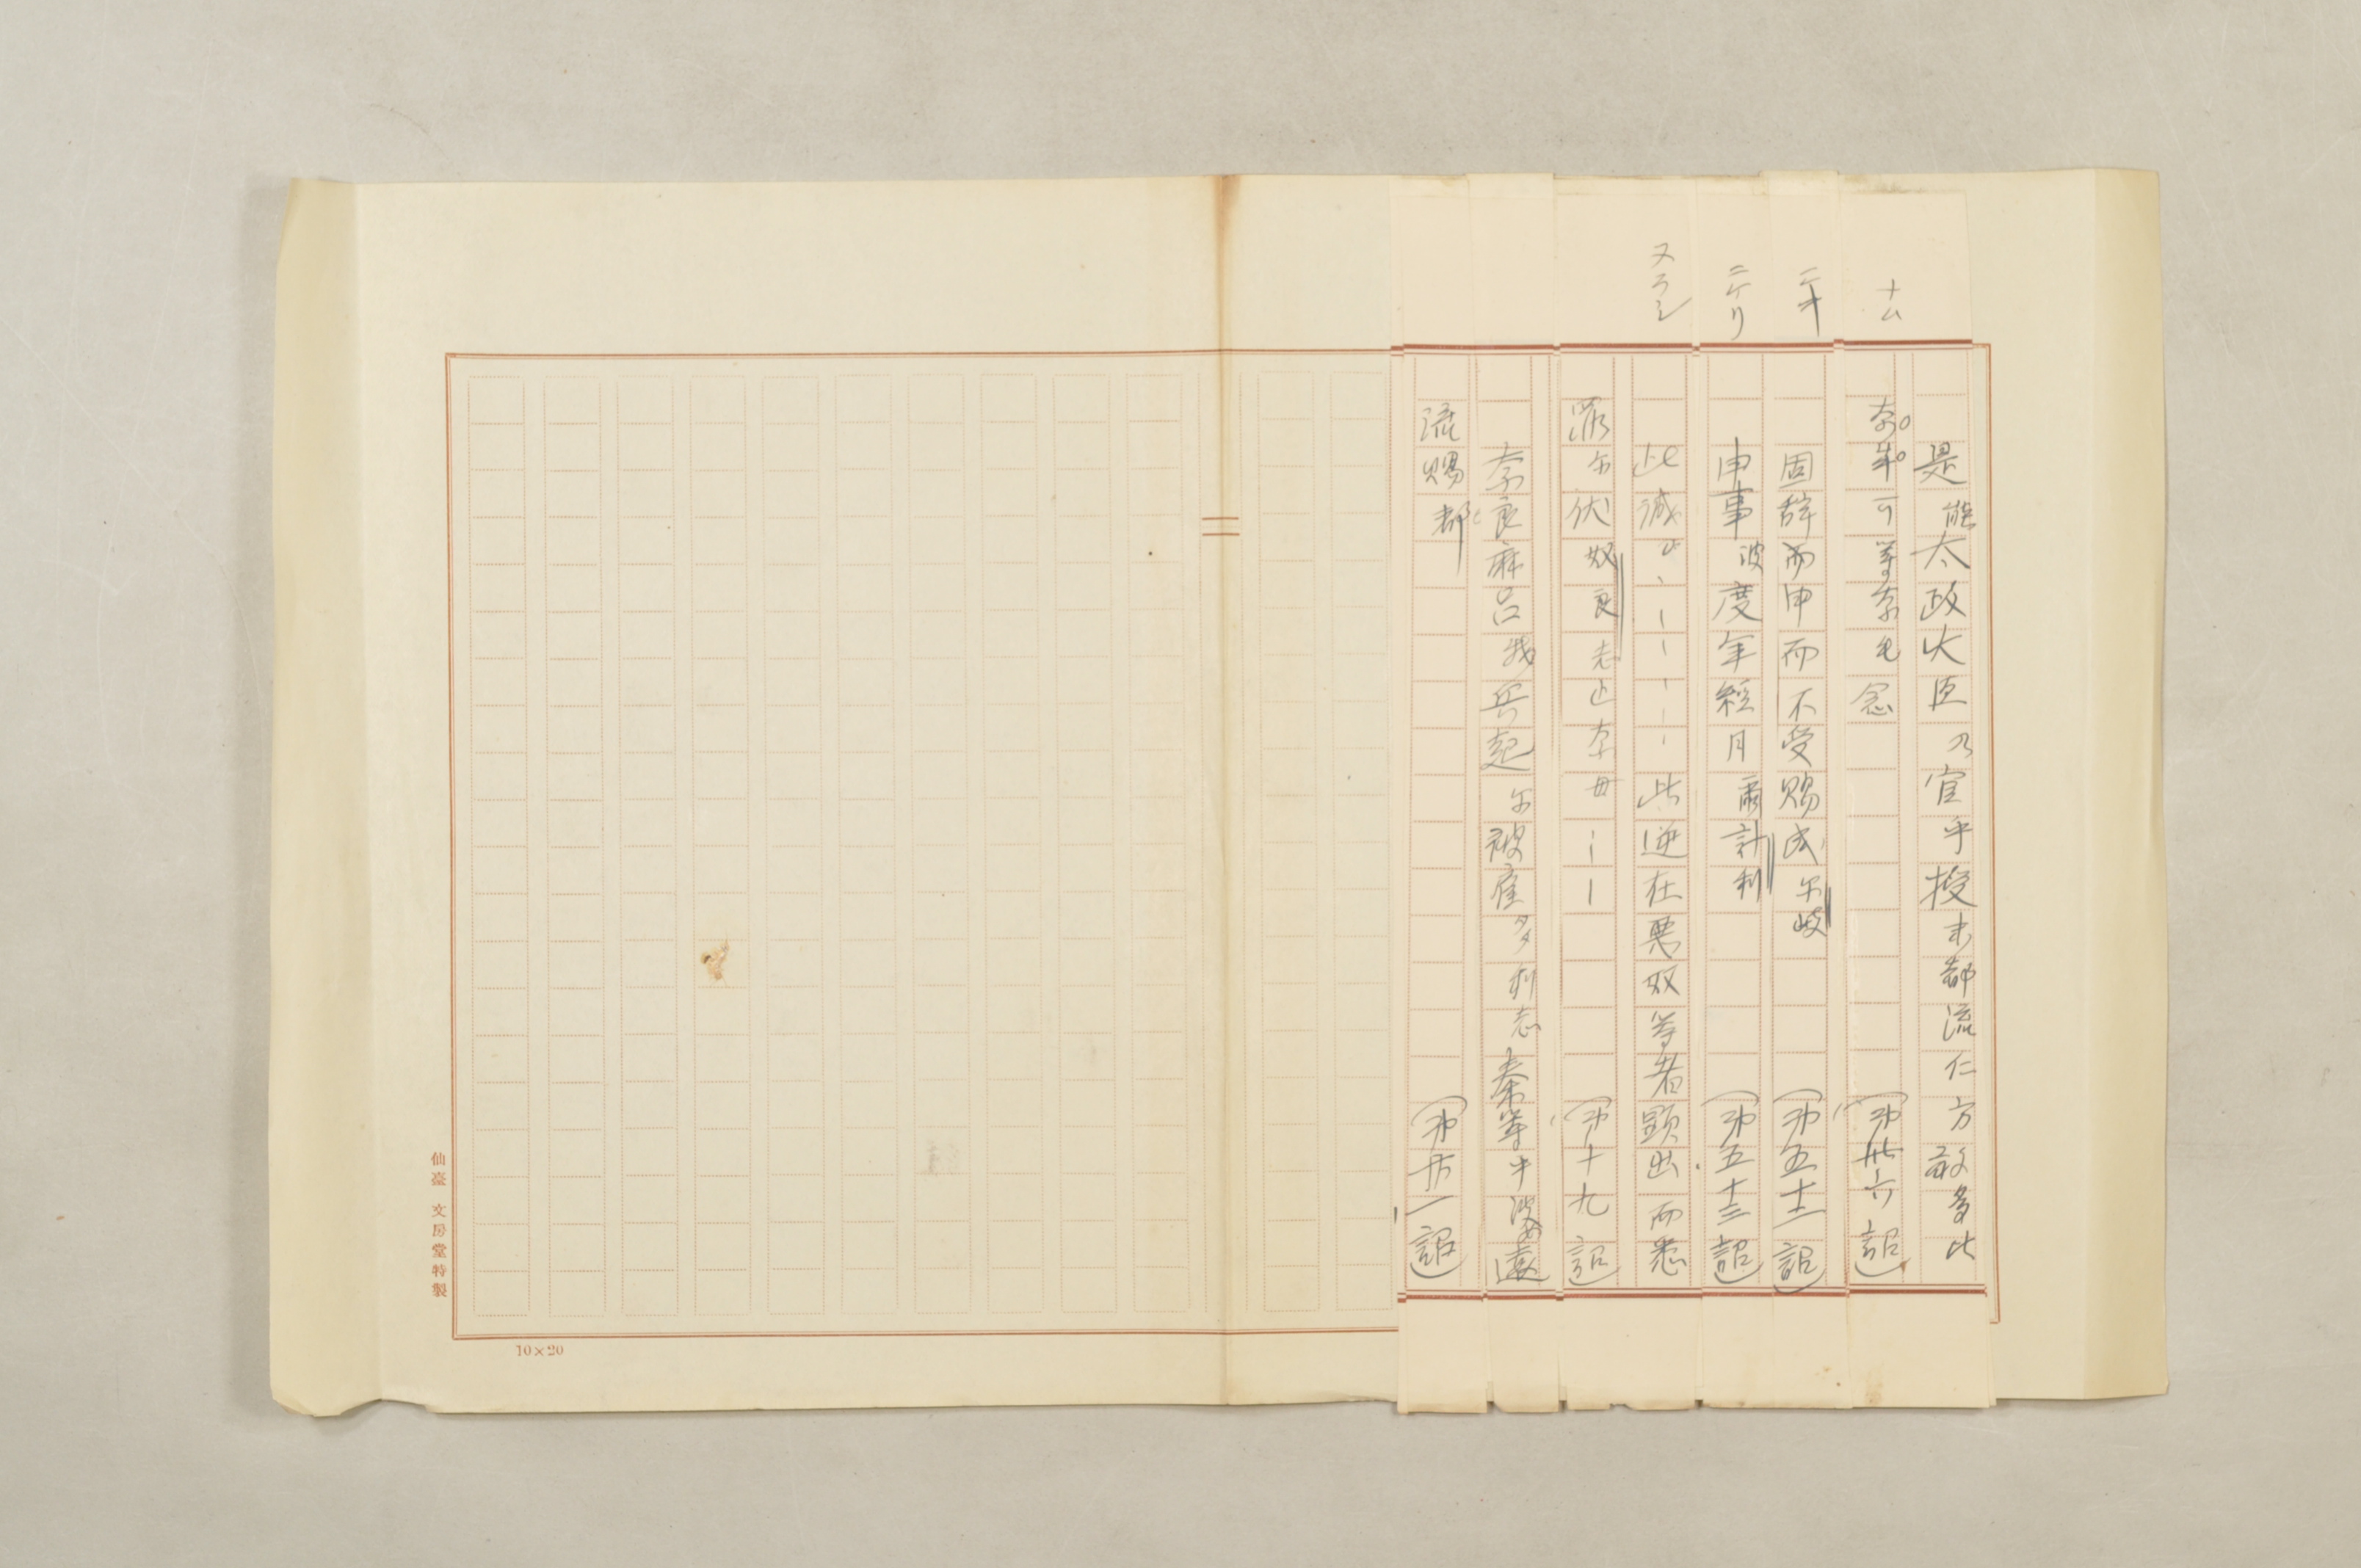 ナム
是能太政大臣乃官乎授末都流仁方敢多比
奈牟可等奈毛念 (第卅六詔)
ニキ
固辞而申而不受賜成尓岐 (第五十二詔)
ニケリ
申事波度年経月尓計利 (第五十三詔)
ヌラシ
此誠 此逆在悪奴等者顕出而悉
罪尓伏奴良志止奈母 (第十九詔)
奈良麻呂我兵起尓被雇多利志秦等乎婆遠
流賜都 (第廿一詔)
仙臺 文房堂特製
10×20